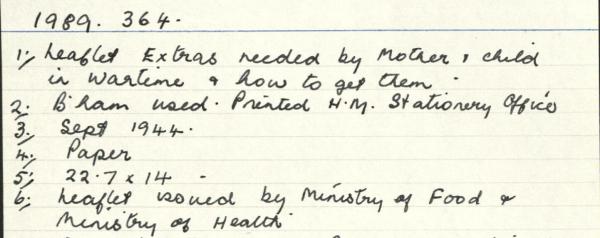 1989. 364.
1; Leaflet Extras needed by Mother & child
in wartime & how to get them.
2. B'ham used. Printed H.M. Stationery Office
3; Sept 1944.
4; Paper
5; 22.7 x 14
6; Leaflet issued by Ministry of Food &
Ministry of Health